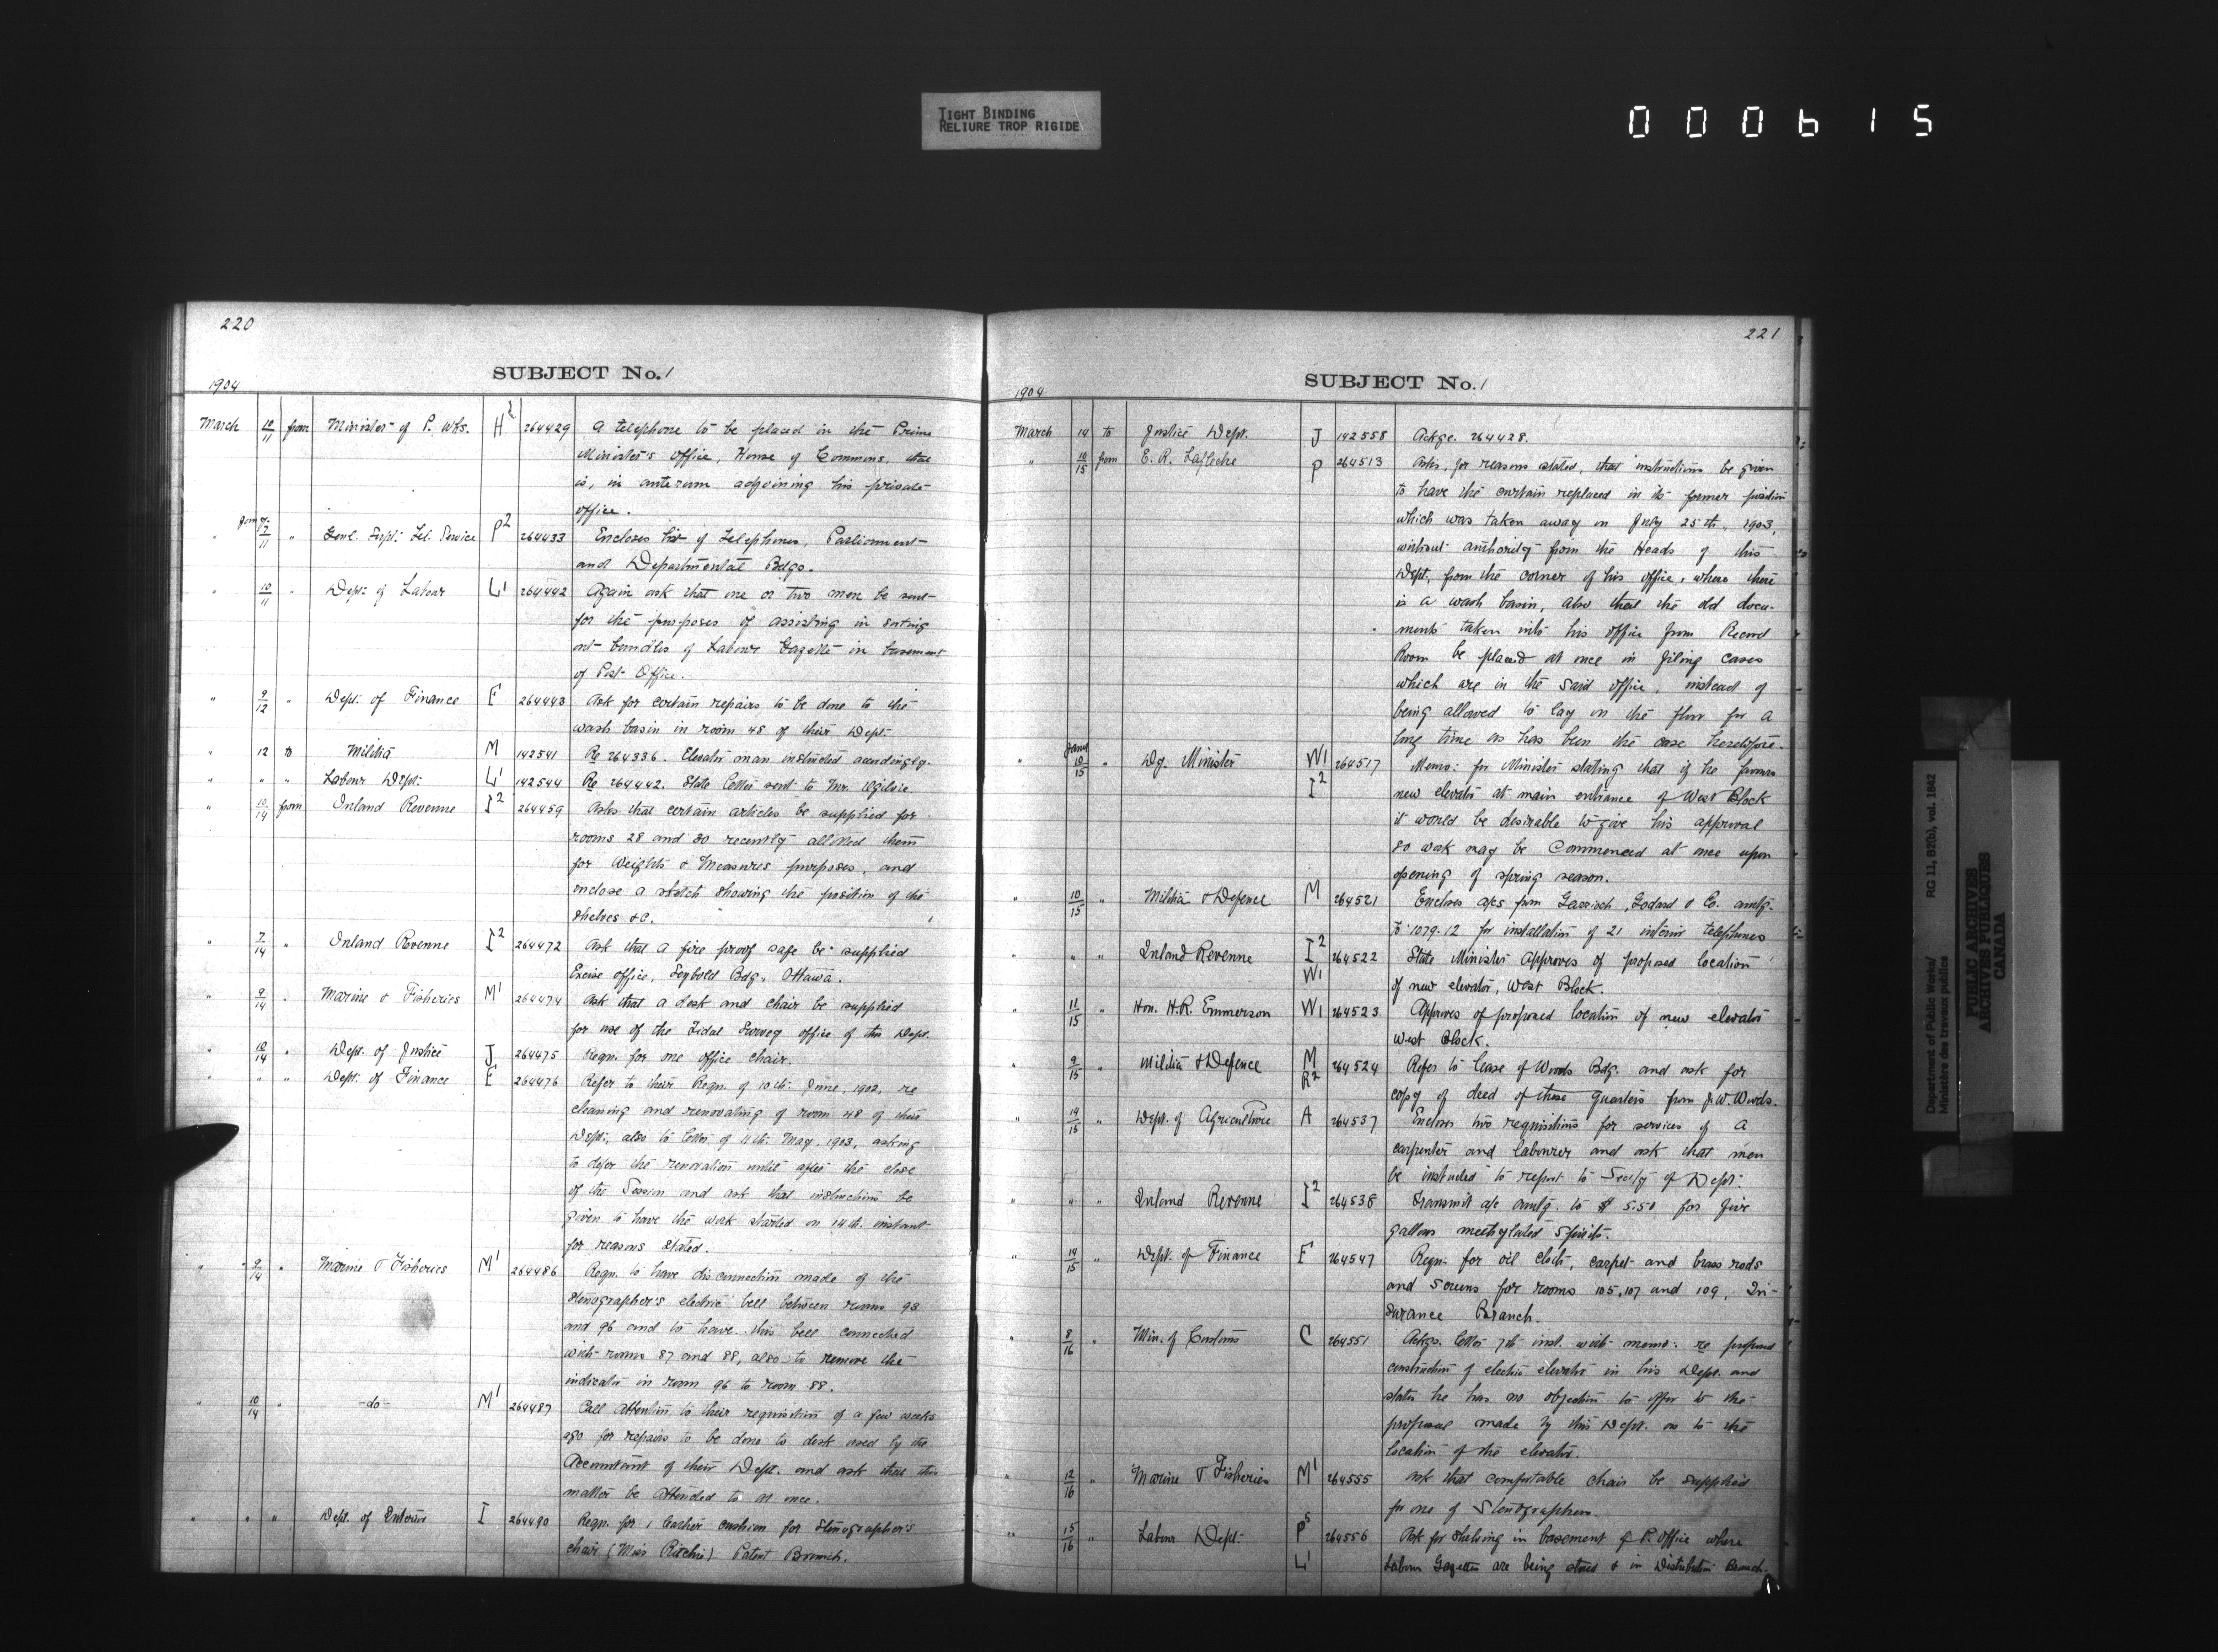 TIGHT BINDING
RELIURE TROP RIGIDE
000615
220
SUBJECT No. 1
1904
March 10/11 from Minister of P. Wks. H2 264429 A telephone to be placed in the Prime
Minister's Office, House of Commons, that
is, in anteroom adjoining his private
office.
" 7/11 " Genl. Supt. Tel. Service P2 264433 Encloses list of Telephones, Parliament
and Departmental Bdgs.
" 10/11 " Dept. of Labour L1 264442 Again ask that one or two men be sent
for the purposes of assisting in sorting
out bundles of Labour Gazette in basement
of Post Office.
" 9/12 " Dept. of Finance F 264443 Ask for certain repairs to be done to the
wash basin in room 48 of their Dept.
" 12 to Militia M 142541 Re 264336. Elevator man instructed accordingly.
" " " Labour Dept. L1 142544 Re 264442. State letter sent to Mr. Ogilvie.
" 10/14 from Inland Revenue I2 264459 Asks that certain articles be supplied for
rooms 28 and 30 recently allotted them
for Weights & Measures purposes, and
enclose a sketch showing the position of the
shelves &c.
" 7/14 " Inland Revenue I2 264472 Ask that a fire proof safe be supplied
Excise office, Seybold Bdg. Ottawa.
" 9/14 " Marine & Fisheries M1 264474 Ask that a desk and chair be supplied
for use of the Tidal Survey office of this Dept.
" 10/14 " Dept. of Justice J 264475 Reqn. for one office chair.
" " " Dept. of Finance F 264476 Refer to their Reqn. of 10th June, 1902, re
cleaning and renovating of room 48 of their
Dept., also to letter of 11th May, 1903, asking
to defer the renovation until after the close
of the Session and ask that instructions be
given to have the work started on 14th. instant
for reasons stated.
" 9/14 " Marine & Fisheries M1 264486 Reqn. to have disconnection made of the
stenographer's electric bell between rooms 93
and 96 and to have this bell connected
with rooms 87 and 88, also to remove the
indicator in room 96 to room 88.
" 10/14 " -do- M1 264487 Call attention to their requisition of a few weeks
ago for repairs to be done to desk used by the
Accountant of their Dept. and ask that this
matter be attended to at once.
" " " Dept. of Interior I 264490 Reqn. for 1 leather cushion for stenographer's
chair (Miss Ritchie) Patent Branch.
221
SUBJECT No. 1
1904
March 14 to Justice Dept. J 142558 Ackge. 264428.
" 10/15 from E. R. Lafleche P 264513 Asks, for reasons stated, that instructions be given
to have the curtain replaced in its former position
which was taken away on July 25th, 1903,
without authority from the Heads of this
Dept, from the corner of his office, where there
is a wash basin, also that the old docu-
ments taken into his office from Record
Room be placed at once in filing cases
which are in the said office, instead of
being allowed to lay on the floor for a
long time as has been the case heretofore.
" 10/15 Dy. Minister W1 I2 264517 Memo: for Minister stating that if he favors
new elevator at main entrance of West Block
it would be desirable to give his approval
so work may be Commenced at once upon
opening of spring season.
" 10/15 " Militia & Defence M 264521 Encloses a/cs from Garrioch, Godard & Co. amtg.
to 1079.12 for installation of 21 interior telephones
" " " Inland Revenue I2 W1 264522 State Minister approves of proposed location
of new elevator, West Block.
" 11/15 " Hon. H.R. Emmerson W1 264523 Approves of proposed location of new elevator
West Block.
" 9/15 " Militia & Defence M R2 264524 Refer to lease of Woods Bdg. and ask for
copy of deed of those quarters from J. W. Woods.
" 14/15 " Dept. of Agriculture A 264537 Encloses two requisitions for services of a
carpenter and labourer and ask that men
be instructed to report to Secty of Dept.
" " " Inland Revenue I2 264538 Transmit a/c amtg. to $ 5.50 for five
gallons methylated spirits.
" 14/15 " Dept. of Finance F 264547 Reqn. for oil cloth, carpet and brass rods
and screws for rooms 105, 107 and 109, In-
surance Branch.
" 8/16 " Min. of Customs C 264551 Ackgs. letter 7th inst. with memo: re proposed
construction of electric elevator in his Dept. and
states he has no objection to offer to the
proposal made by this Dept. as to the
location of the elevator.
" 12/16 " Marine & Fisheries M1 264555 Ask that comfortable chair be supplied
for one of Stenographers.
" 15/16 " Labour Dept. P5 L1 264556 Ask for shelving in basement of P. Office where
Labour Gazettes are being stored & in Distribution Branch.
Department of Public Works/ RG 11, B2(b), vol. 1842
Ministère des travaux publics
PUBLIC ARCHIVES
ARCHIVES PUBLIQUES
CANADA